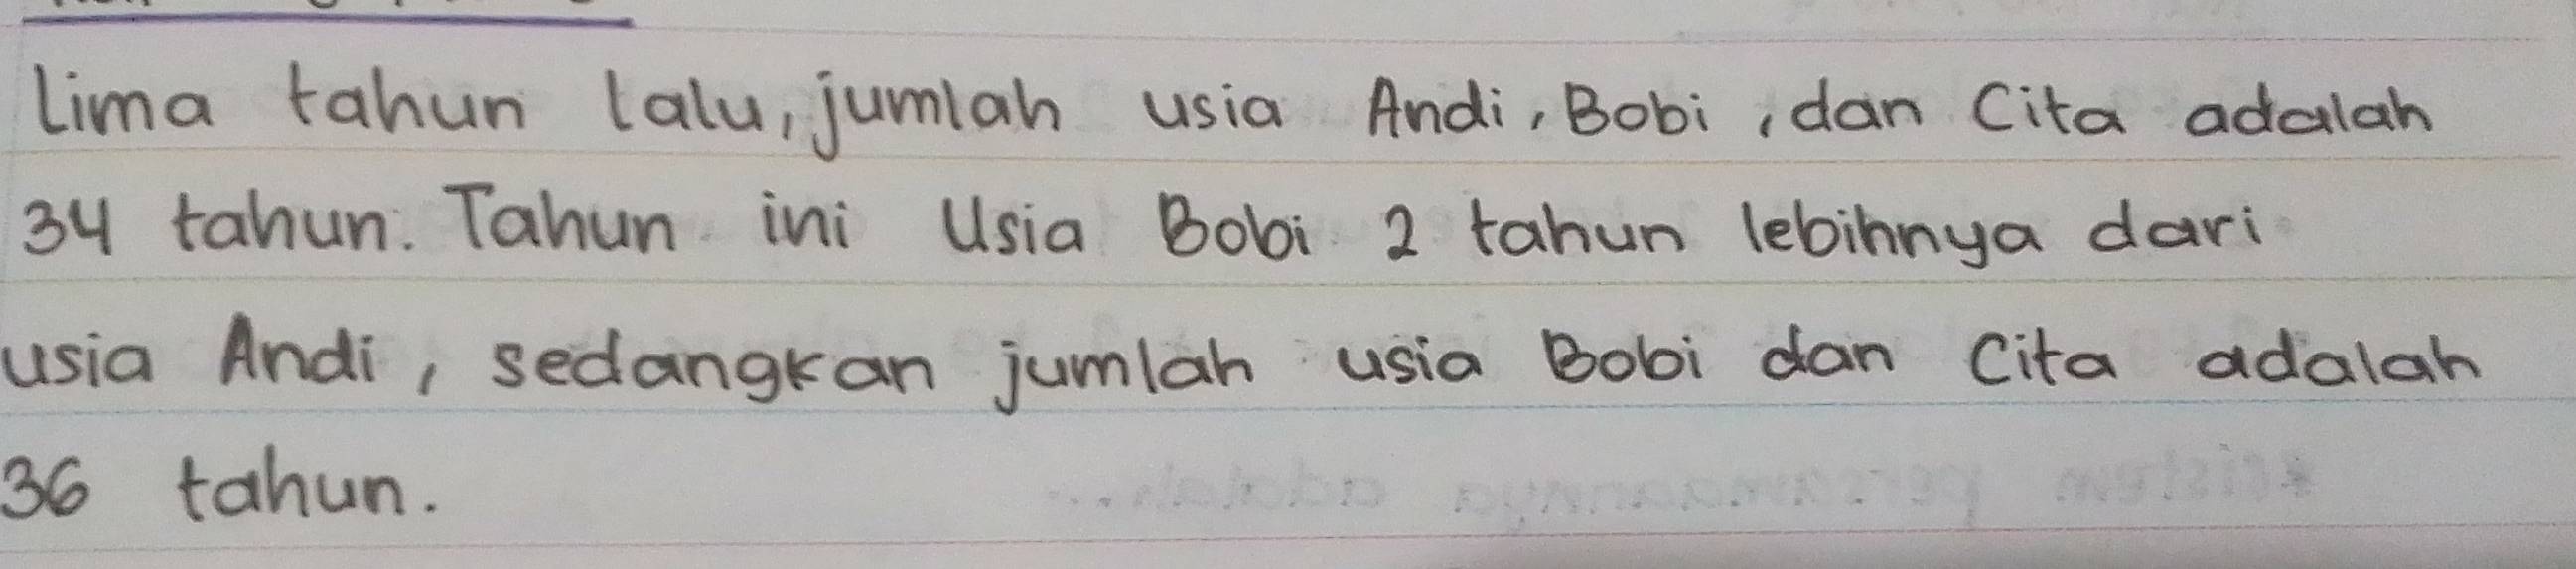 Lima tahun lalu, jumlah usia Andi, Bobi, dan Cita adalah
34 tahun. Tahun ini Usia Bobi 2 tahun lebihnya dari
usia Andi, sedangkan jumlah usia Bobi dan Cita adalah
36 tahun.